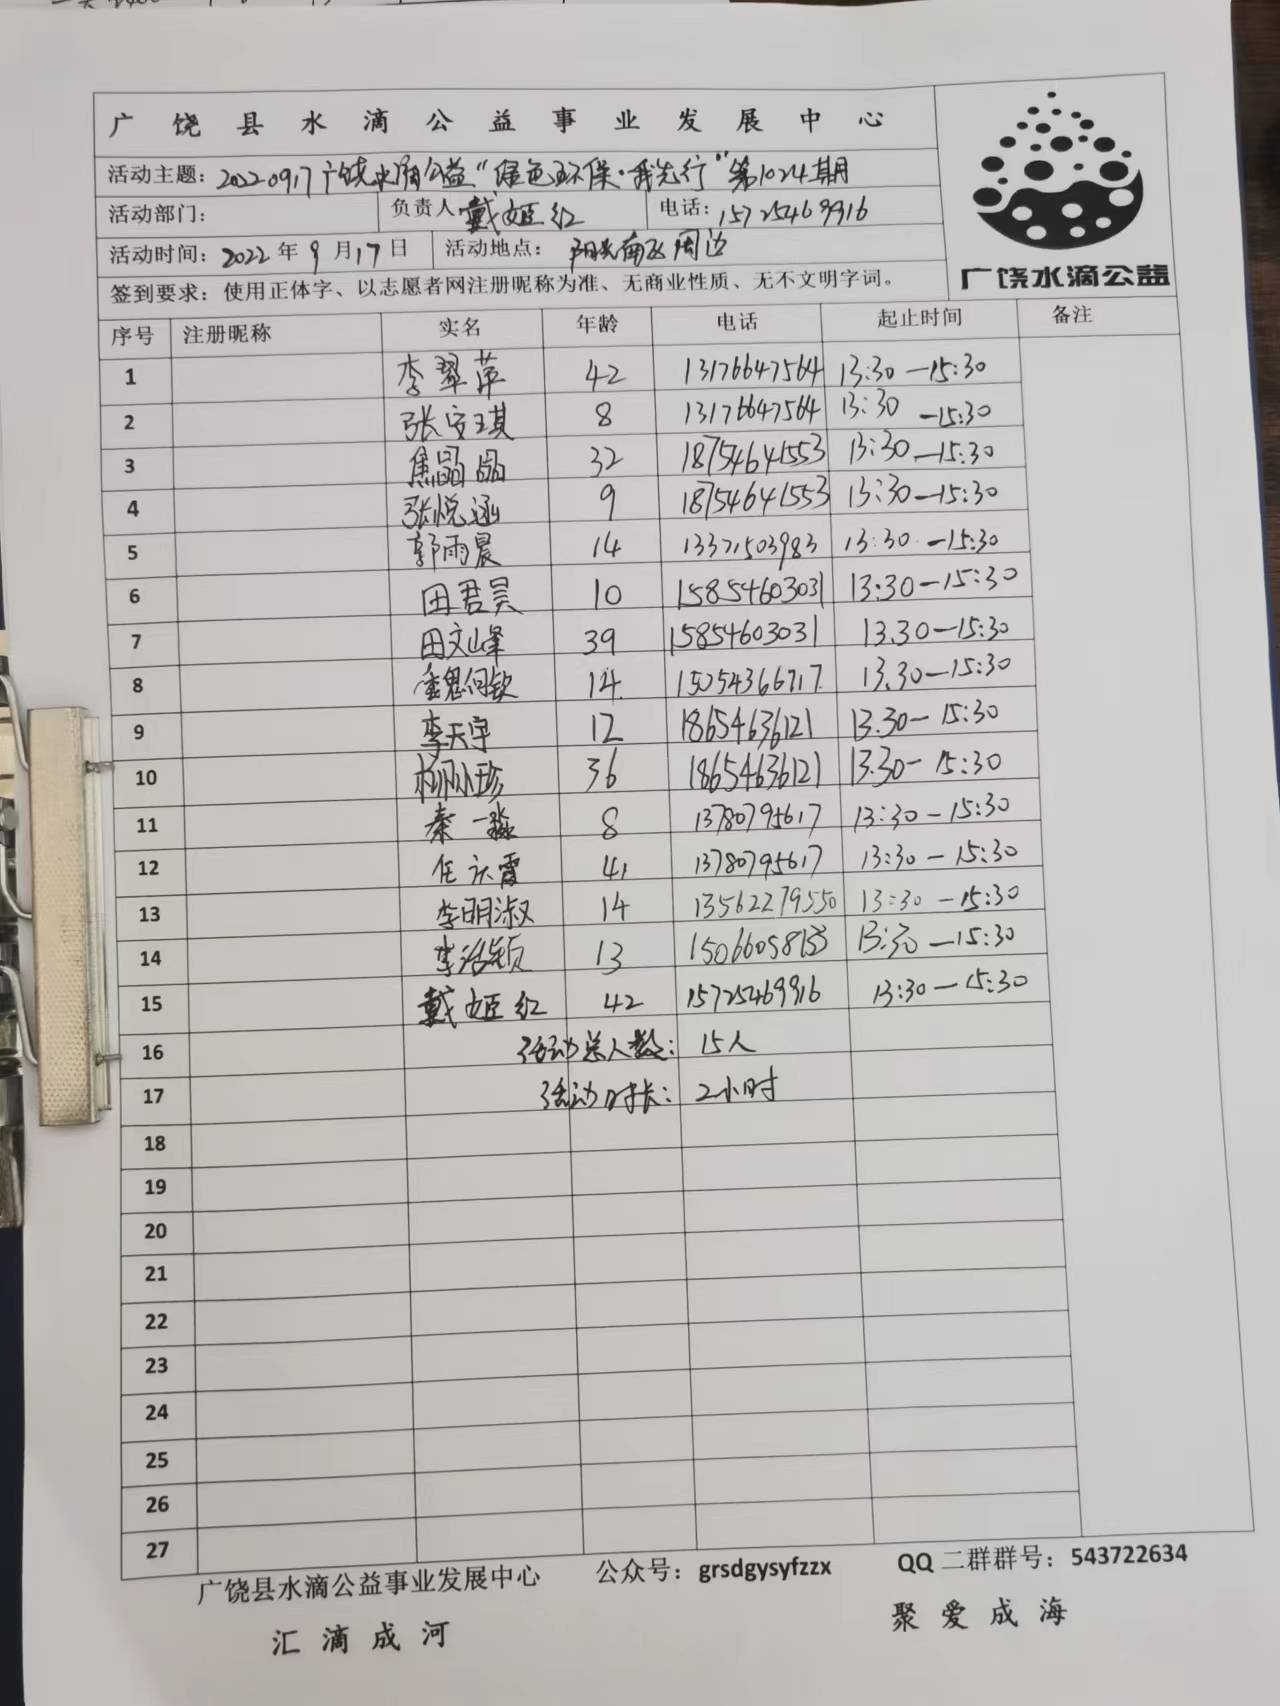 广饶县水滴公益事业发展中心
活动主题：20220917广饶水滴公益“绿色环保·我先行”第1024期
活动部门： 负责人 戴姬红 电话：15725469916
活动时间：2022年9月17日 活动地点：阳光南区周边
签到要求：使用正体字、以志愿者网注册昵称为准、无商业性质、无不文明字词。
广饶水滴公益
序号 注册昵称 实名 年龄 电话 起止时间 备注
1 李翠萍 42 13176647564 13:30—15:30
2 张安琪 8 13176647564 13:30—15:30
3 焦晶晶 32 18754641553 13:30—15:30
4 张悦涵 9 18754641553 13:30—15:30
5 郭雨晨 14 13371503983 13:30—15:30
6 田君昊 10 15854603031 13:30—15:30
7 田文峰 39 15854603031 13.30—15:30
8 14 15054366717 13.30—15:30
9 李天宇 12 18654636121 13.30—15:30
10 柳小珍 36 18654636121 13.30—15:30
11 秦一淼 8 13780795617 13:30—15:30
12 任庆霞 41 13780795617 13:30—15:30
13 李明淑 14 13562279550 13:30—15:30
14 李浩颖 13 13:30—15:30
15 戴姬红 42 15725469916 13:30—15:30
16 活动总人数：15人
17 活动时长：2小时
18
19
20
21
22
23
24
25
26
27
广饶县水滴公益事业发展中心 公众号：grsdgysyfzzx QQ二群群号：543722634
汇滴成河 聚爱成海